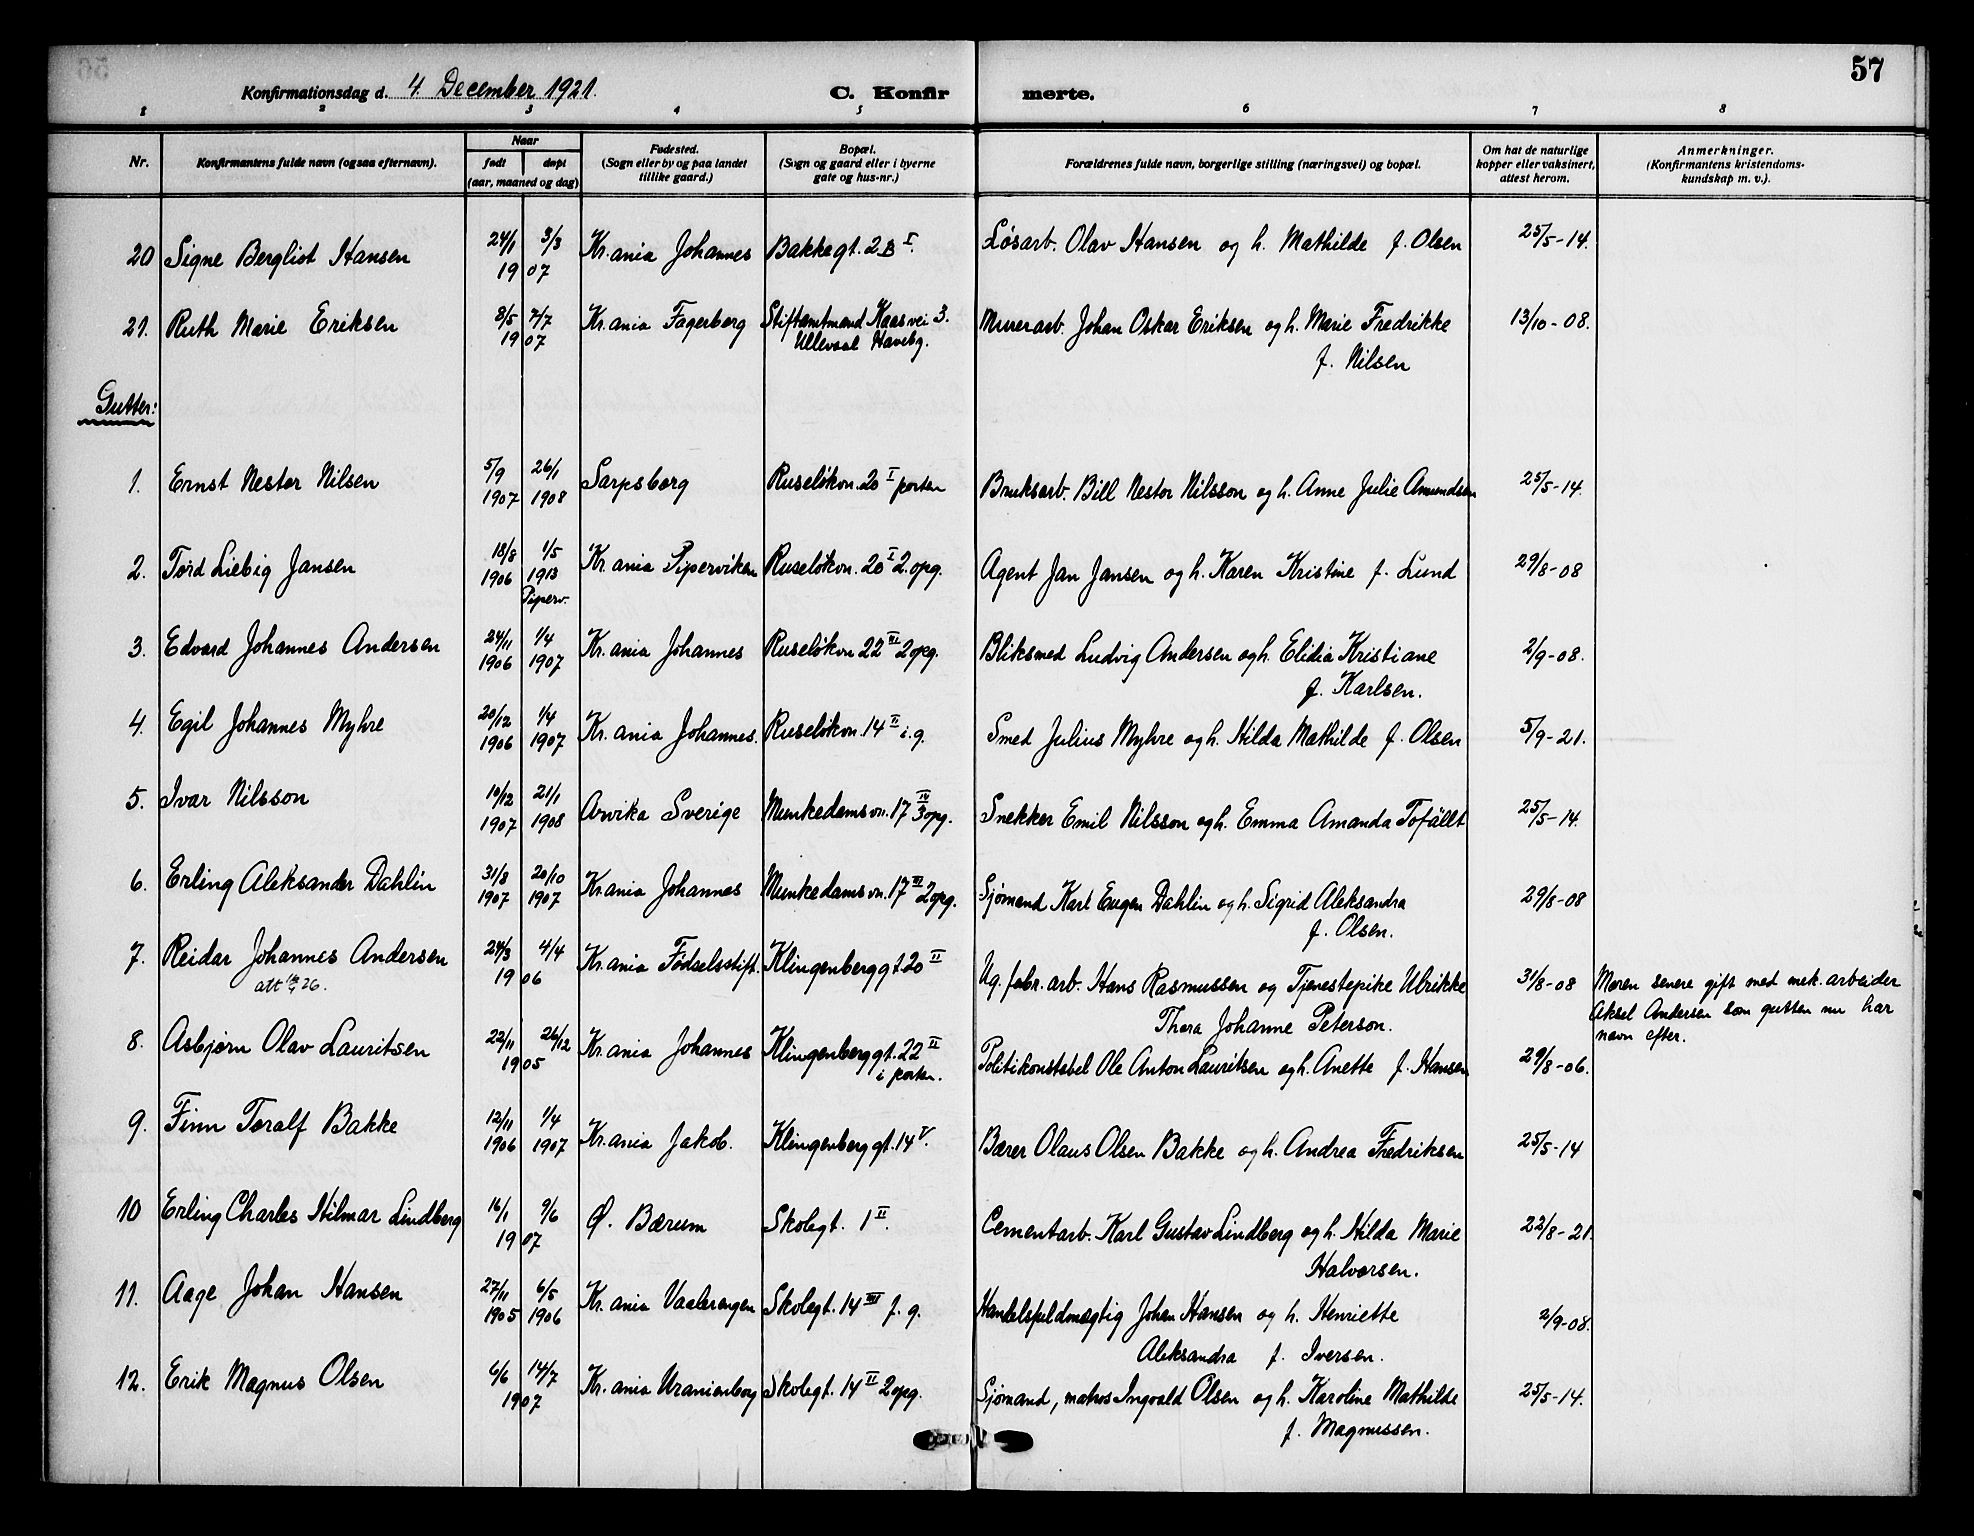 57
Konfirmationsdag d. 4. December 1921. C. Konfirmerte.
1 2 3 4 5 6 7 8
Nr. Konfirmantens fulde navn (ogsaa efternavn). Naar født døpt (aar, maaned og dag) Fødested. (Sogn eller by og paa landet tillike gaard.) Bopæl. (Sogn og gaard eller i byerne gate og hus-nr.) Forældrenes fulde navn, borgerlige stilling (næringsvei) og bopæl. Om hat de naturlige kopper eller vaksinert, attest herom. Anmerkninger. (Konfirmantens kristendomskundskap m. v.).
20 Signe Bergliot Hansen 24/1 3/3 1907 Kr.ania Johannes Bakkegt. 2B I. Løsarb. Olav Hansen og h. Mathilde f. Olsen 25/5-14.
21. Ruth Marie Eriksen 8/5 7/7 1907 Kr.ania Fagerborg Stiftamtmand Kaasvei 3. Murerarb. Johan Oskar Eriksen og h. Marie Fredrikke 13/10-08.
Ullevaal Haveby. f. Nilsen
Gutter:
1. Ernst Nestor Nilsen 5/9 1907 26/1 1908 Sarpsborg Ruseløkvn. 20 I porten Bruksarb. Bill Nestor Nilsson og h. Anne Julie Amundsen 25/5-14.
2. Tord Liebig Jansen 18/8 1906 1/5 1913 Piperv. Kr.ania Piperviken Ruseløkvn. 20 I 2. opg. Agent Jan Jansen og h. Karen Kristine f. Lund 29/8-08
3. Edvard Johannes Andersen 24/11 1906 1/4 1907 Kr.ania Johannes Ruseløkvn 22 III 2 opg. Bliksmed Ludvig Andersen og h. Elidia Kristiane 2/9-08.
f. Karlsen.
4. Egil Johannes Myhre 20/12 1906 1/4 1907 Kr.ania Johannes. Ruseløkvn. 14 II i.g. Smed Julius Myhre og h. Hilda Mathilde f. Olsen 5/9-21.
5. Ivar Nilsson 10/12 1907 21/1 1908 Arvika Sverige Munkedamsvn. 17 IV 3 opg. Snekker Emil Nilsson og h. Emma Amanda Tofällt 25/5-14.
6. Erling Aleksander Dahlin 31/8 1907 20/10 1907 Kr.ania Johannes Munkedamsvn. 17 III 2 opg. Sjømand Karl Eugen Dahlin og h. Sigrid Aleksandra 29/8-08
f. Olsen.
7. Reidar Johannes Andersen 24/3 4/4 1906 Kr.ania Fødselsstift. Klingenberggt 20 II Ug. fabr. arb. Hans Rasmussen og Tjenestepike Ulrikke 31/8-08 Moren senere gift med mek. arbeider
att 26. Thora Johanne Peterson. Aksel Andersen som gutten nu har
navn efter.
8. Asbjørn Olav Lauritsen 22/11 26/12 1905 Kr.ania Johannes Klingenberggt. 22 II Politikonstabel Ole Anton Lauritsen og h. Anette f. Hansen 29/8-06.
i porten.
9. Finn Toralf Bakke 12/11 1906 1/4 1907 Kr.ania Jakob. Klingenberggt. 14 V. Bærer Olaus Olsen Bakke og h. Andrea Fredriksen 25/5-14
10 Erling Charles Hilmar Lindberg 16/1 9/6 1907 Ø. Bærum Skolegt. 1 II. Cementarb. Karl Gustav Lindberg og h. Hilda Marie 22/8-21.
Halvorsen.
11. Aage Johan Hansen 27/11 1905 6/5 1906 Kr.ania Vaalerengen Skolegt. 14 III f. g. Handelsfuldmægtig Johan Hansen og h. Henriette 2/9-08.
Aleksandra f. Iversen.
12. Erik Magnus Olsen 6/6 14/7 1907 Kr.ania Uranienborg Skolegt. 14 II 2 opg. Sjømand, matros Ingvald Olsen og h. Karoline Mathilde 25/5-14.
f. Magnussen.